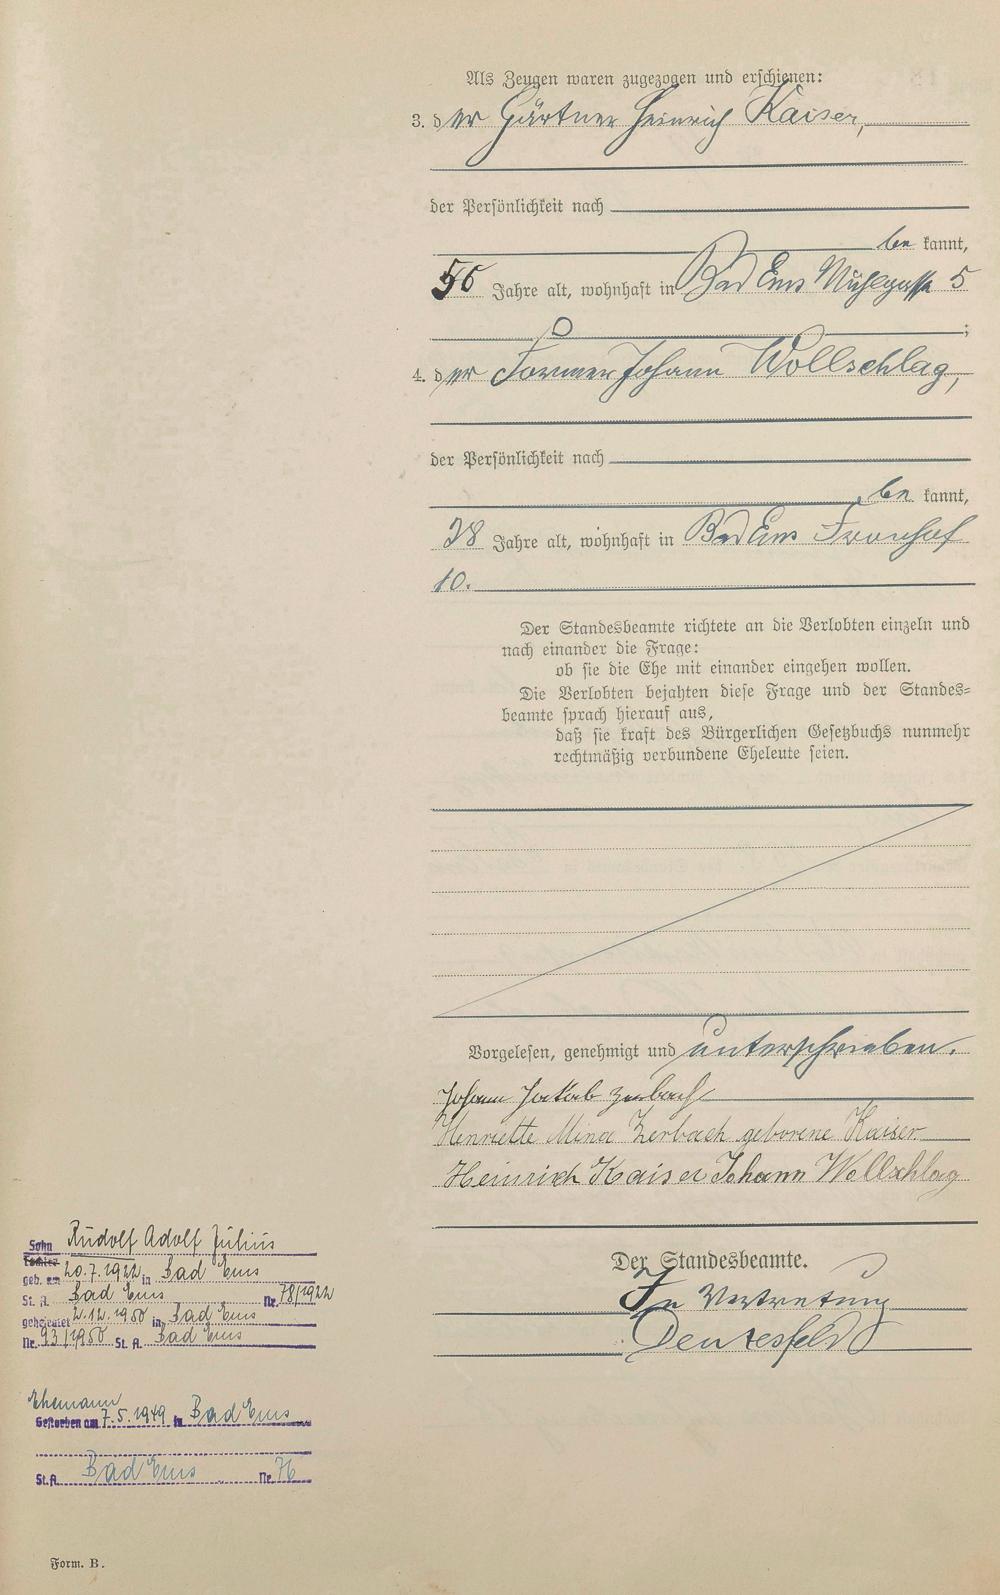 Als Zeugen waren zugezogen und erschienen:
3. der Gärtner Heinrich Kaiser,
der Persönlichkeit nach
be kannt,
56 Jahre alt, wohnhaft in Bad Ems Mühlgasse 5
;
4. der Former Johann Wollschlag,
der Persönlichkeit nach
be kannt,
28 Jahre alt, wohnhaft in Bad Ems Fronhof
10.
Der Standesbeamte richtete an die Verlobten einzeln und
nach einander die Frage:
ob sie die Ehe mit einander eingehen wollen.
Die Verlobten bejahten diese Frage und der Standes=
beamte sprach hierauf aus,
daß sie kraft des Bürgerlichen Gesetzbuchs nunmehr
rechtmäßig verbundene Eheleute seien.
Vorgelesen, genehmigt und unterschrieben.
Johann Jakob Zerbach
Henriette Mina Zerbach geborene Kaiser
Heinrich Kaiser Johann Wollschlag
Der Standesbeamte.
In Vertretung
Sohn Rudolf Adolf Julius
Tochter
geb. am 20.7.1922 in Bad Ems
St. A. Bad Ems Nr. 78/1922
geheiratet 2.12.1950 in Bad Ems
Nr. 93/1950 St. A. Bad Ems
Ehemann
Gestorben am 7.5.1949 in Bad Ems
St. A. Bad Ems Nr. 76
Form. B.